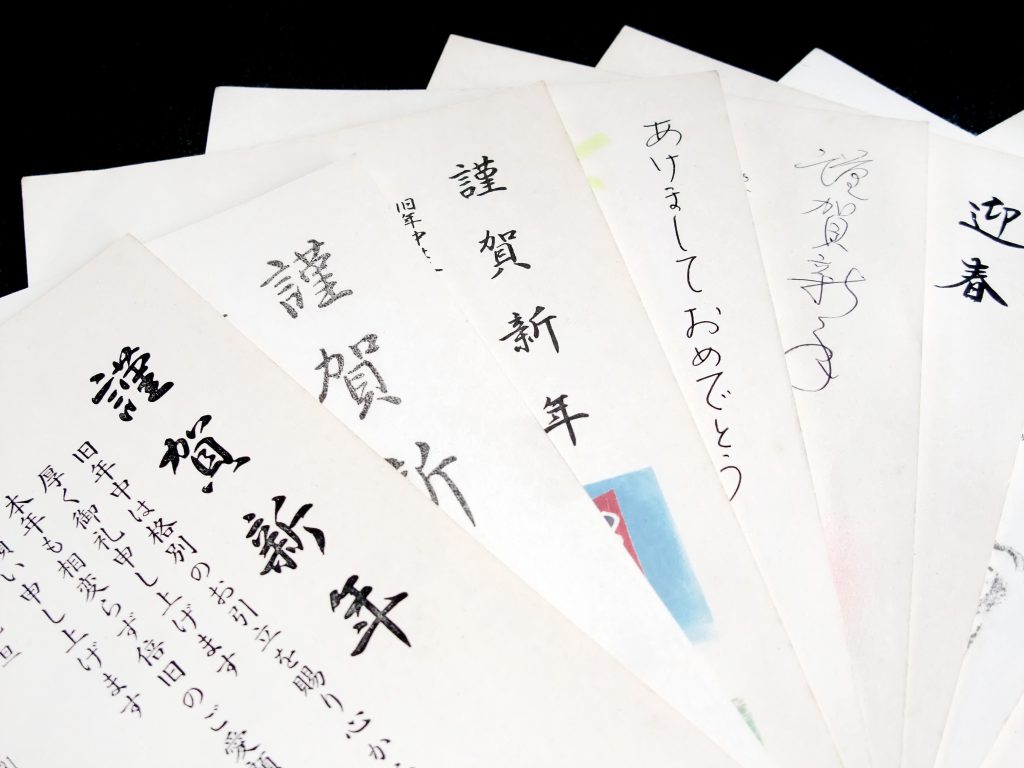 謹賀新年
旧年中は格別のお引立を賜り心か
厚く御礼申し上げます
本年も相変らず倍旧のご愛顧
い申し上げます
謹賀新
謹賀新年
旧年中
あけましておめでとう
謹賀新年
迎春